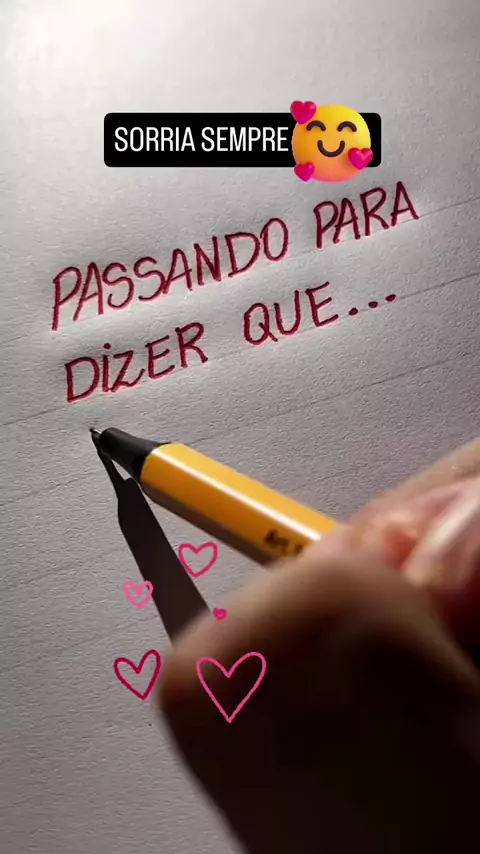 SORRIA SEMPRE
PASSANDO PARA
DIZER QUE...